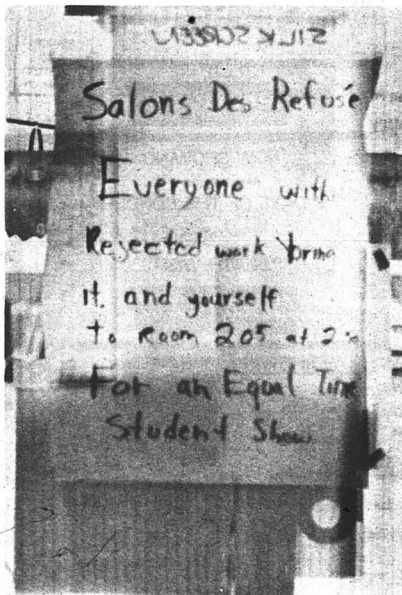 SILK SCREEN
Salons Des Refusé
Everyone with
Rejected work bring
it. and yourself
to Room 205 at 2
For an Equal Time
Student Show